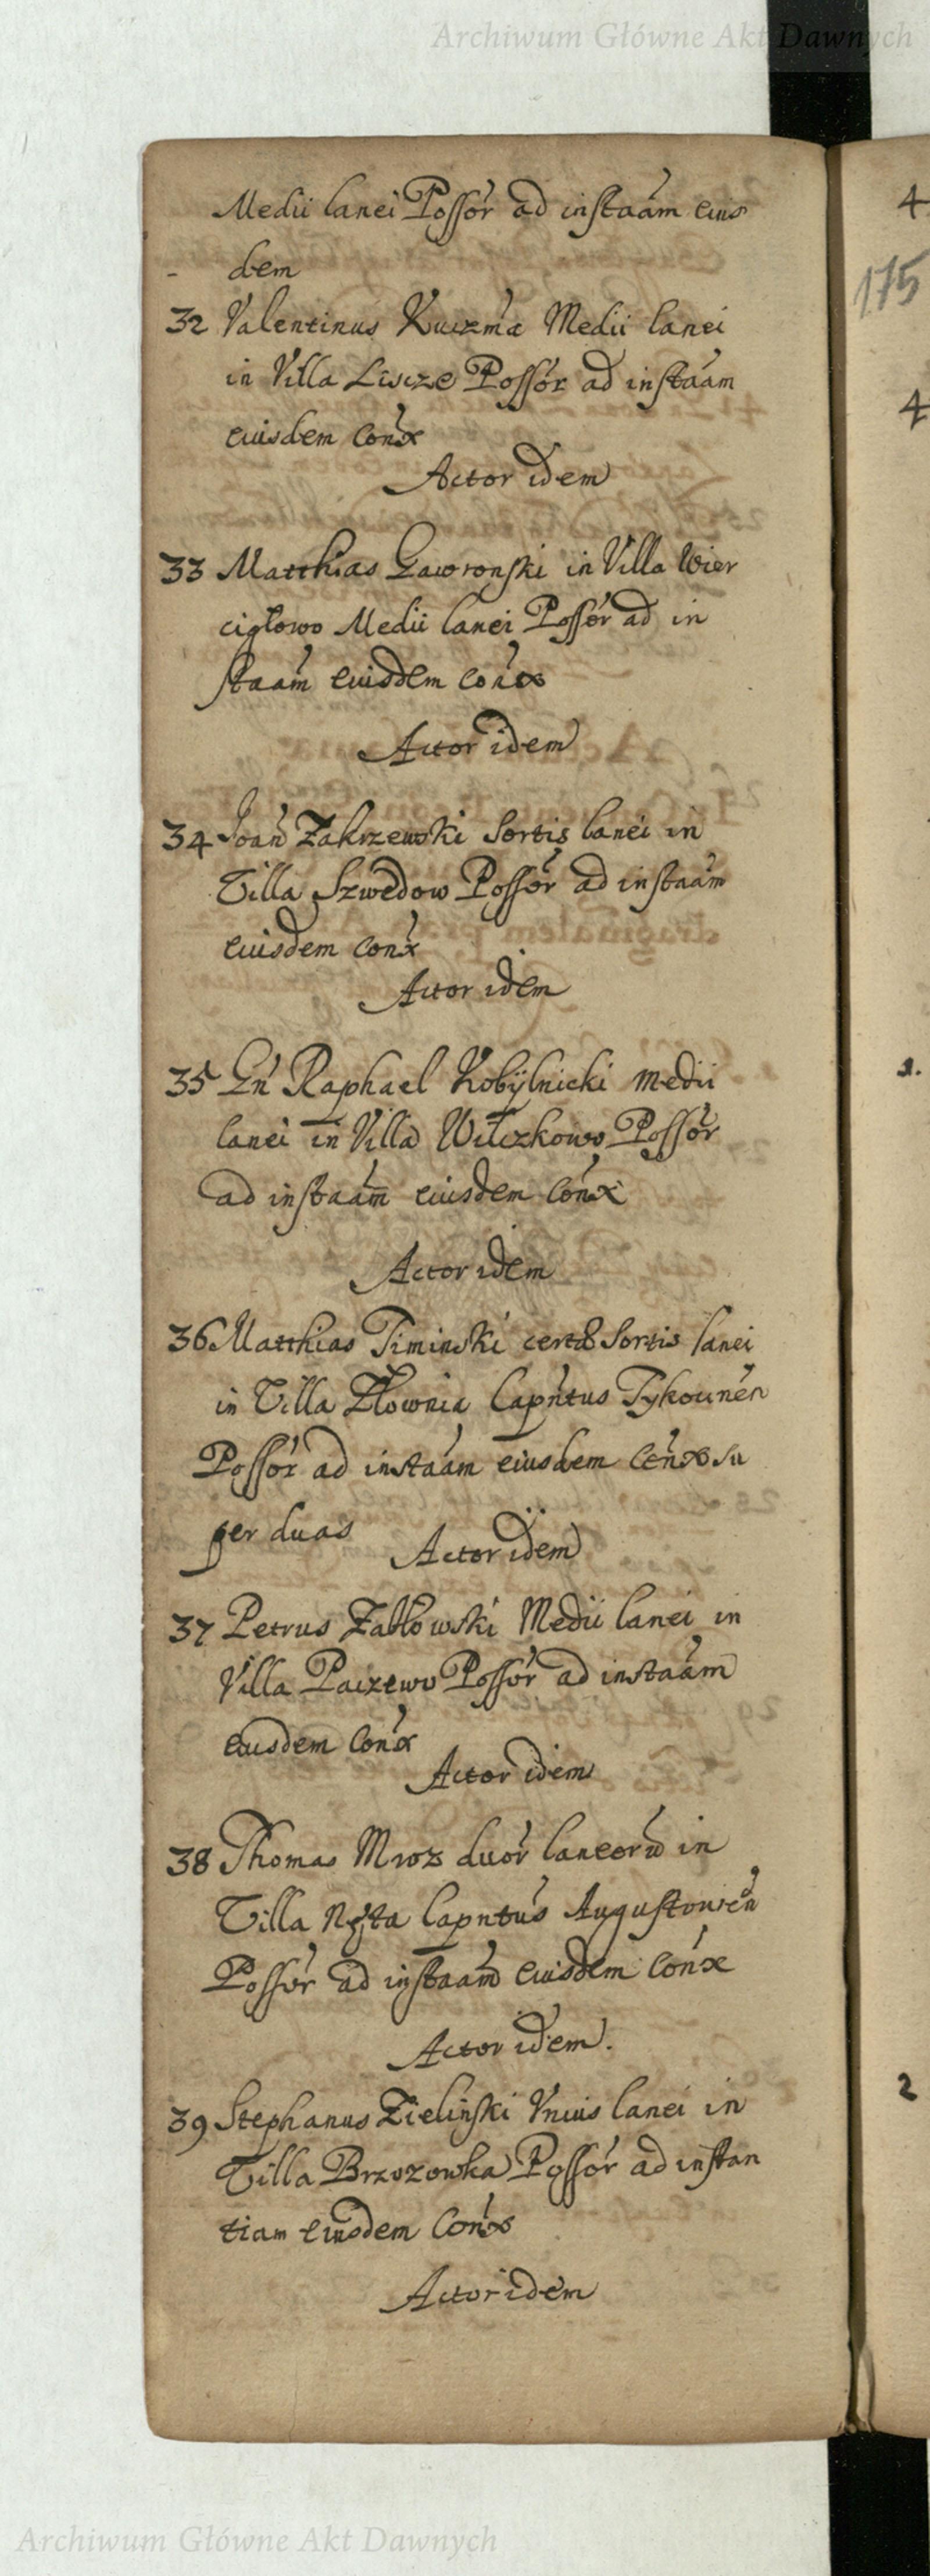 Archiwum Główne Akt Dawnych
Medii lanei Possor ad instaam eius
- dem
32 Valentinus Kuczma Medii lanei
in Villa Liscze Possor ad instaam
euisdem Conx
Actor idem
33 Matthias Gawronski in Villa Wier
cigłowo Medii lanei Possor ad in
staam euisdem Conx
Actor idem
34 Joan Zakrzewski Sortis lanei in
Villa Szwedow Possor ad instaam
euisdem Conx
Actor idem
35 Gn Raphael Kobÿlnicki medii
lanei in Villa Wilczkowo Possor
ad instaam euisdem Conx
Actor idem
36 Matthias Timinski certæ Sortis lanei
in Villa Złownia Capntus Tykocinen
Possor ad instaam eiusdem Conx su
per duas
Actor idem
37 Petrus Zabłowski Medii lanei in
Villa Paczewo Possor ad instaam
eiusdem Conx
Actor idem
38 Thomas Mroz duor laneoru in
Villa Neta Capntus Augustowen
Possor ad instaam euisdem Conx
Actor idem.
39 Stephanus Zielinski Vnius lanei in
Villa Brzozowka Possor ad instan
tiam eiusdem Conx
Actor idem
4
175
4
1.
2
Archiwum Główne Akt Dawnych